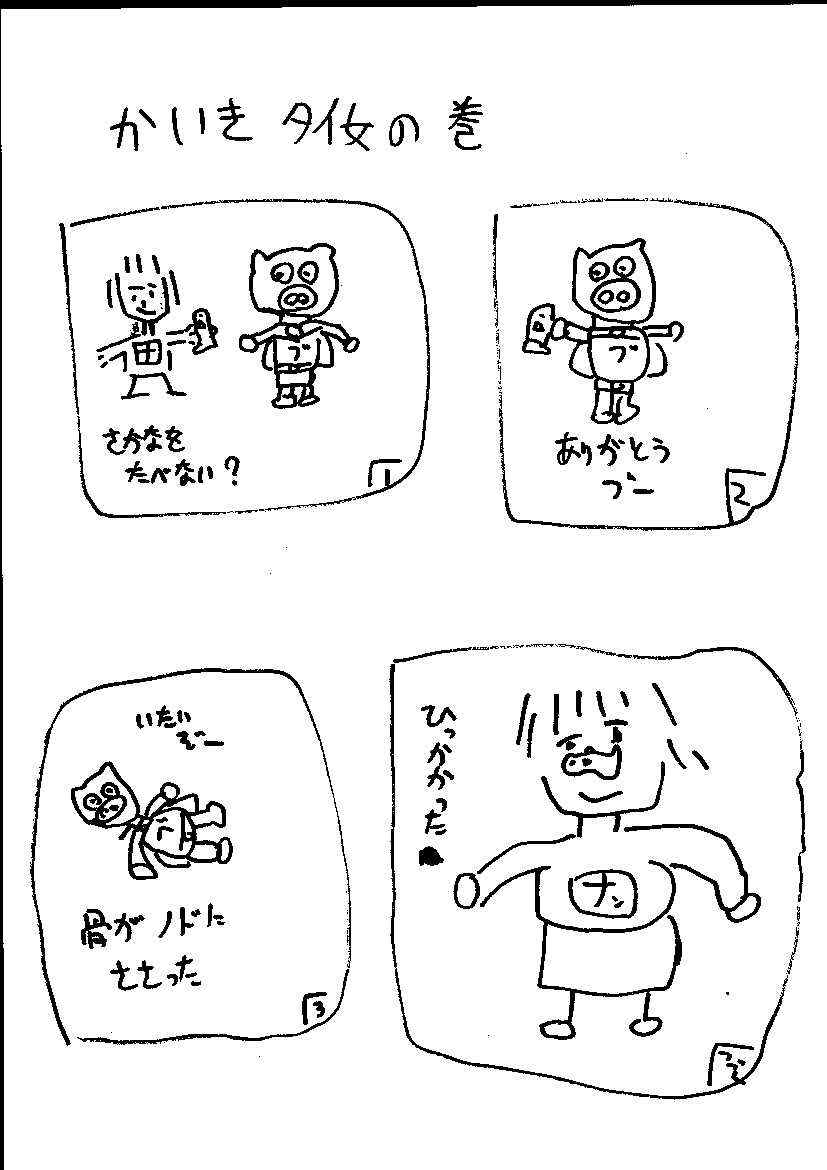 かいき タイ女の巻
田
ブ
さかなを
たべない？
1
ブ
ありがとう
ブー
2
いたい
ぞー
骨がノドに
ささった
3
ひっかかった
ナン
つぎ